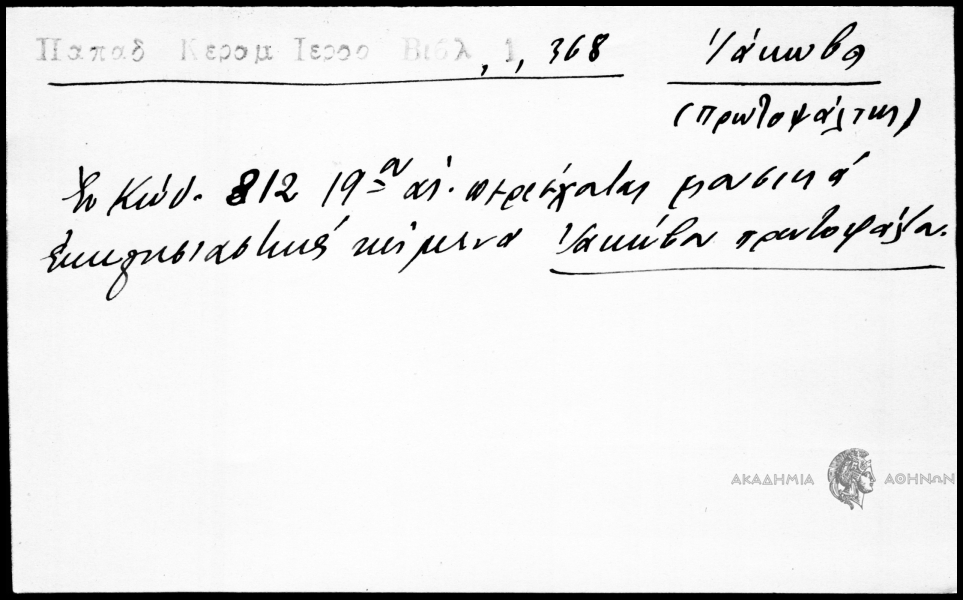 Παπαδ Κεραμ Ιεροσ Βιβλ 1, , 368
Ἰάκωβος
(Πρωτοψάλτης)
Ἐν Κώδ. 812 19ου αἰ. περιέχονται μουσικά
ἐκκλησιαστικά κείμενα Ἰακώβου πρωτοψάλτου.
ΑΚΑΔΗΜΙΑ ΑΘΗΝΩΝ